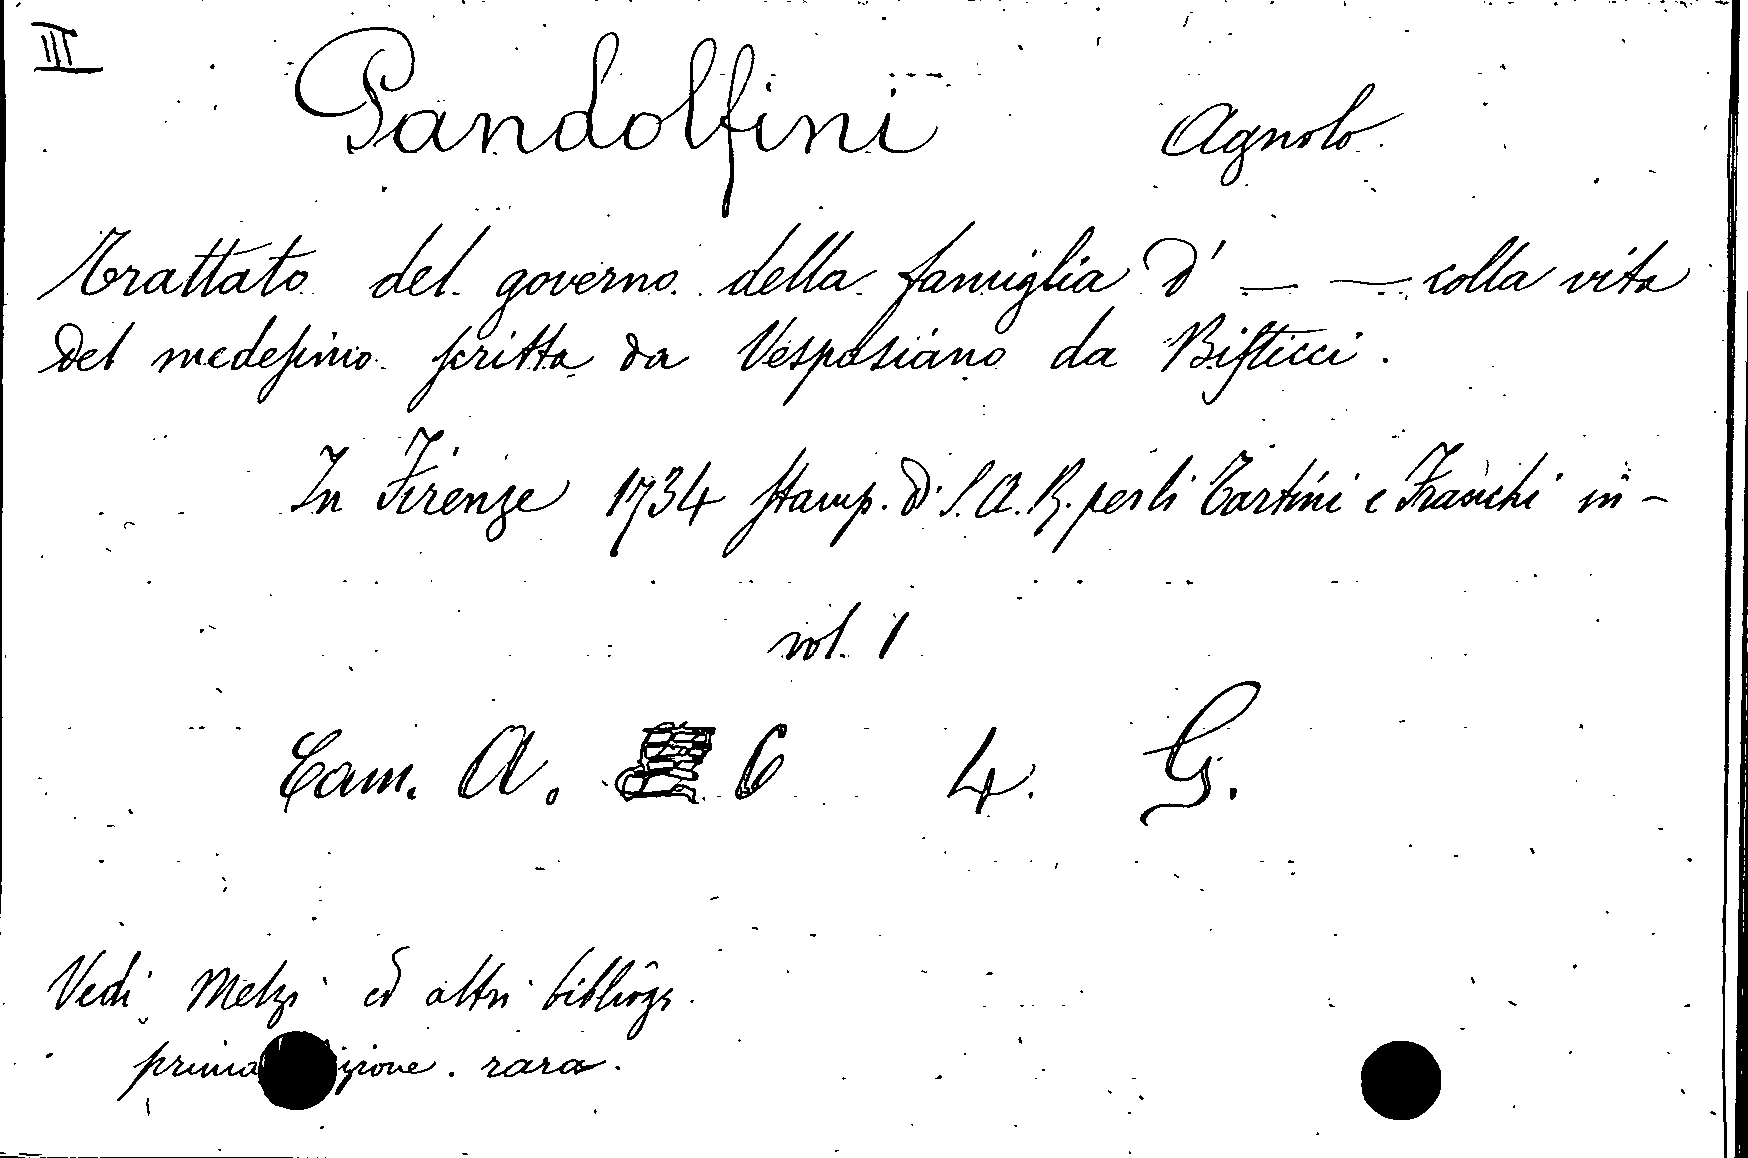 III
Pandolfini Agnolo.
Trattato del governo della famiglia d' — — colla vita
del medesimo scritta da Vespasiano da Bisticci.
In Firenze 1734 Stamp. di S. A. R. per li Tartini e Franchi in -
vol. 1
Cam. A. 6 4. G.
Vedi Melzi ed altri bibliogr.
prima izione. rara.